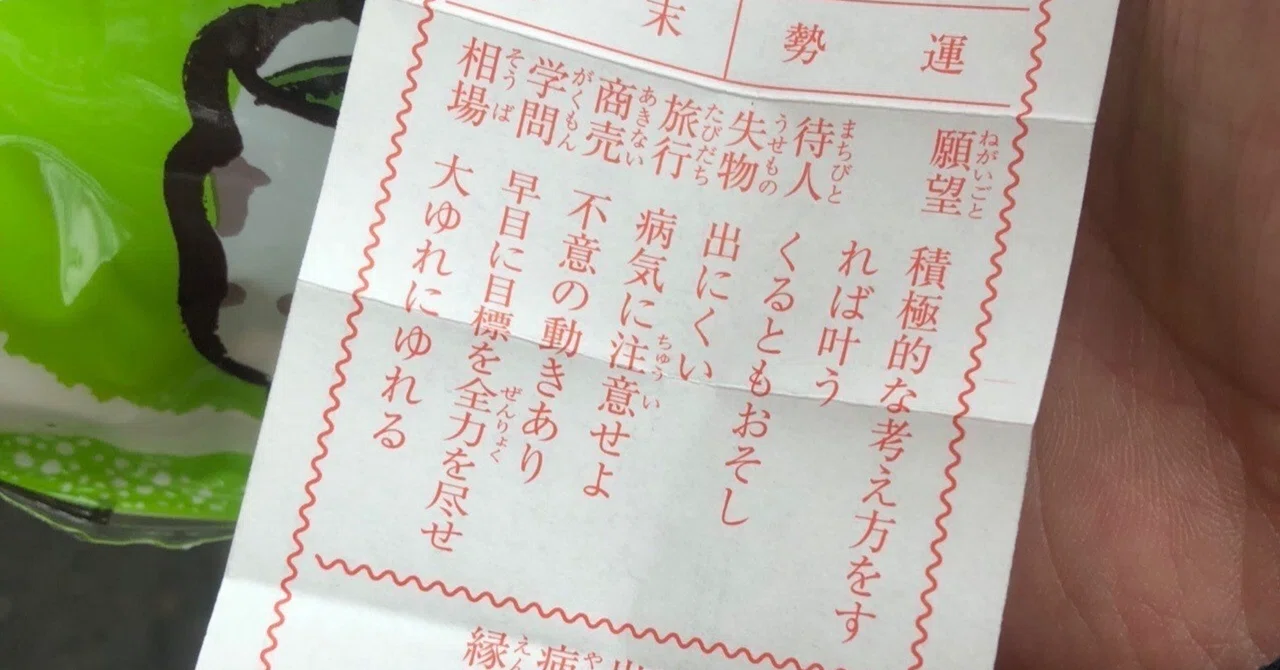 運勢
末
ねがいごと
願望 積極的な考え方をす
れば叶う
まちびと
待人 くるともおそし
うせもの
失物 出にくい
たびだち ちゅうい
旅行 病気に注意せよ
あきない
商売 不意の動きあり
がくもん ぜんりょく
学問 早目に目標を全力を尽せ
そうば
相場 大ゆれにゆれる
や
病
えん
縁